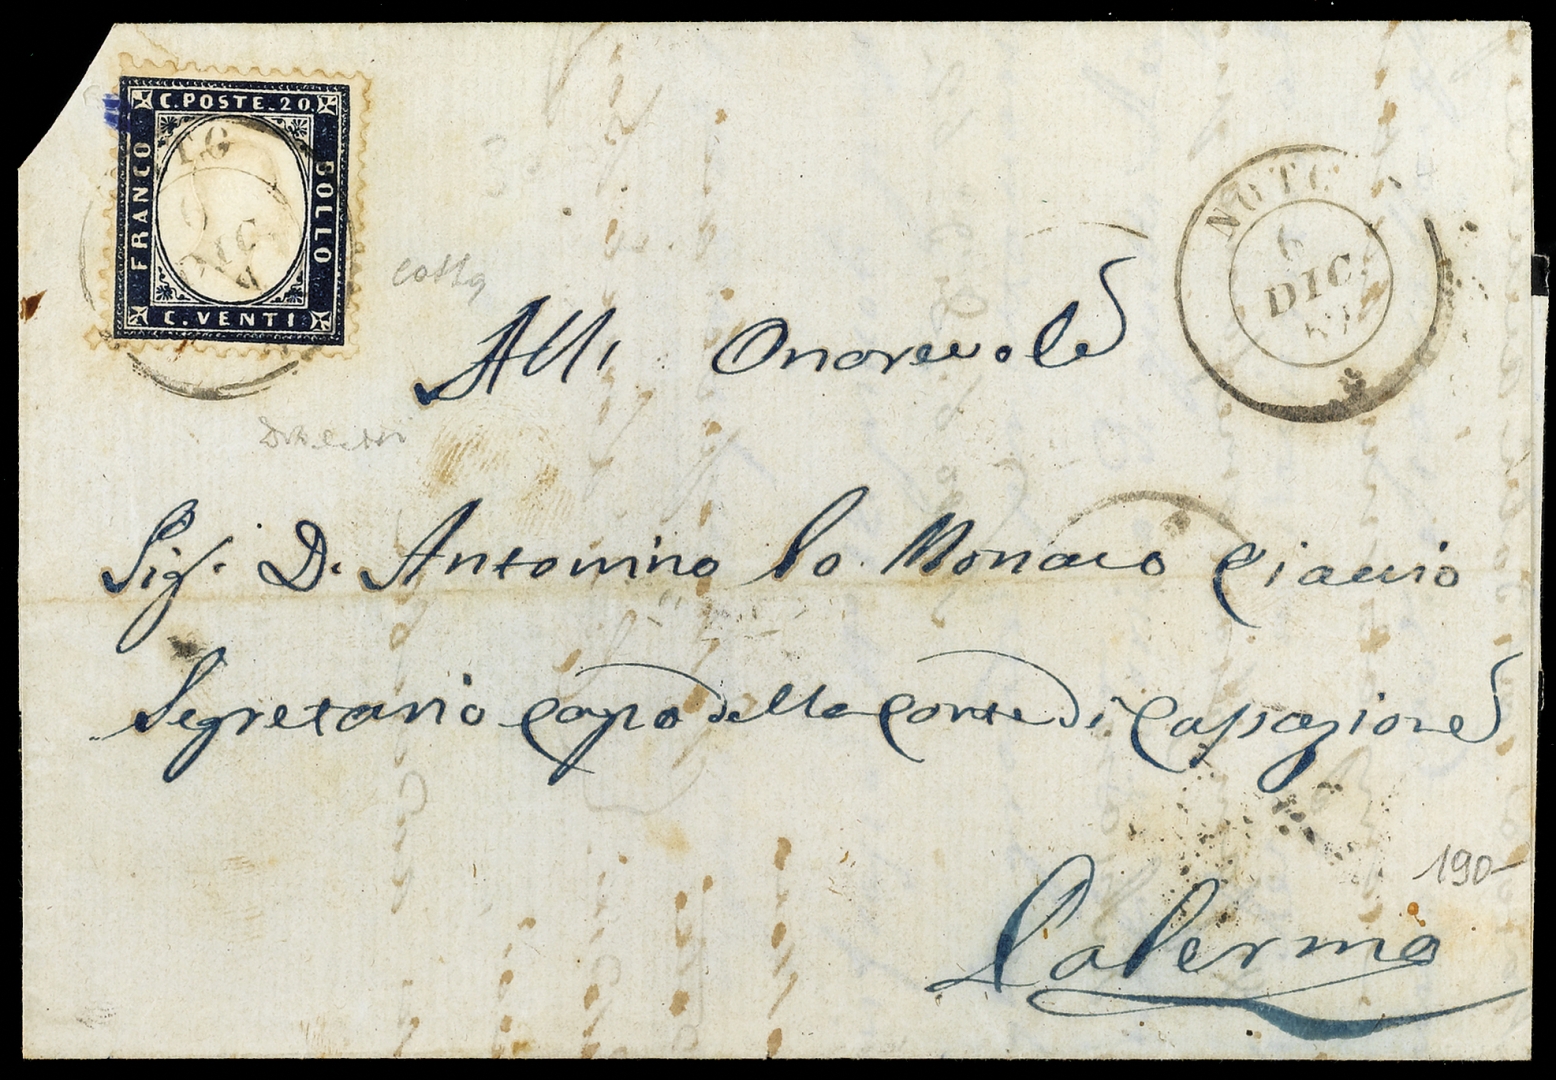 C. POSTE. 20.
FRANCO
BOLLO
C. VENTI.
NOTO
6
DIC
All' Onorevole
Sig. D. Antonino lo Monaco Ciaccio
Segretario Capo della Corte di Cassazione
Palermo
190-